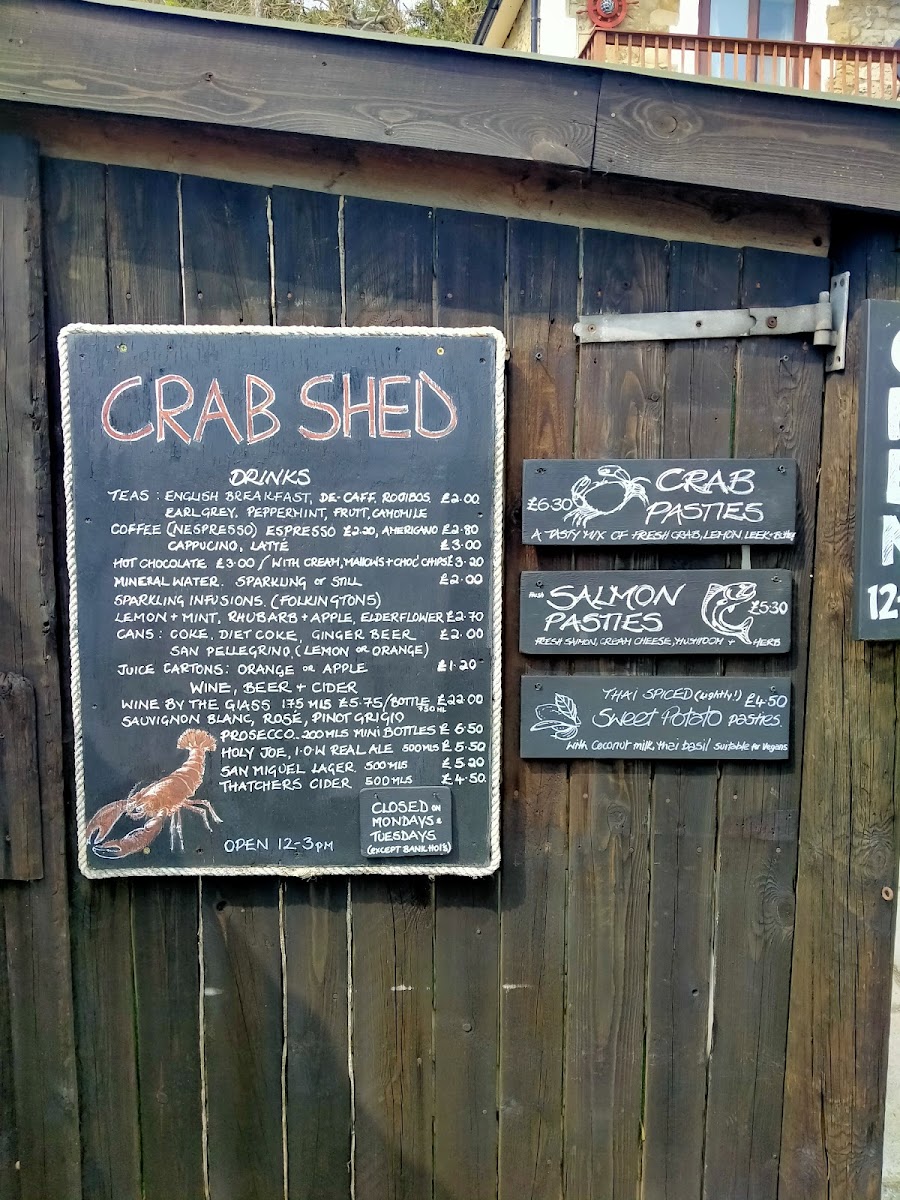 CRAB SHED
DRINKS
TEAS: ENGLISH BREAKFAST, DE-CAFF, ROOIBOS, £2.00
EARL GREY, PEPPERMINT, FRUIT, CAMOMILE
COFFEE (NESPRESSO) ESPRESSO £2.20, AMERICANO £2.80
CAPPUCINO, LATTÉ £3.00
HOT CHOCOLATE £3.00 / WITH CREAM, MALLOWS + CHOC' CHIPS £3.20
MINERAL WATER. SPARKLING or STILL £2.00
SPARKLING INFUSIONS. (FOLKINGTONS)
LEMON + MINT, RHUBARB + APPLE, ELDERFLOWER £2.70
CANS: COKE, DIET COKE, GINGER BEER £2.00
SAN PELLEGRINO, (LEMON OR ORANGE)
JUICE CARTONS: ORANGE OR APPLE £1.20
WINE, BEER + CIDER
WINE BY THE GLASS 175 MLS £5.75/BOTTLE 750ML £22.00
SAUVIGNON BLANC, ROSÉ, PINOT GRIGIO
PROSECCO. 200MLS MINI BOTTLES £6.50
HOLY JOE, I.O.W REAL ALE 500MLS £5.50
SAN MIGUEL LAGER. 500MLS £5.20
THATCHERS CIDER 500MLS £4.50.
OPEN 12-3PM
CLOSED ON
MONDAYS &
TUESDAYS
(EXCEPT BANK HOL'S)
£6.30 CRAB
PASTIES
A TASTY MIX OF FRESH CRAB, LEMON LEEK +
SALMON
PASTIES £5.30
FRESH SALMON, CREAM CHEESE, MUSHROOM + HERB
THAI SPICED (lightly!) £4.50
Sweet Potato pasties.
with Coconut milk, thai basil suitable for vegans
12-